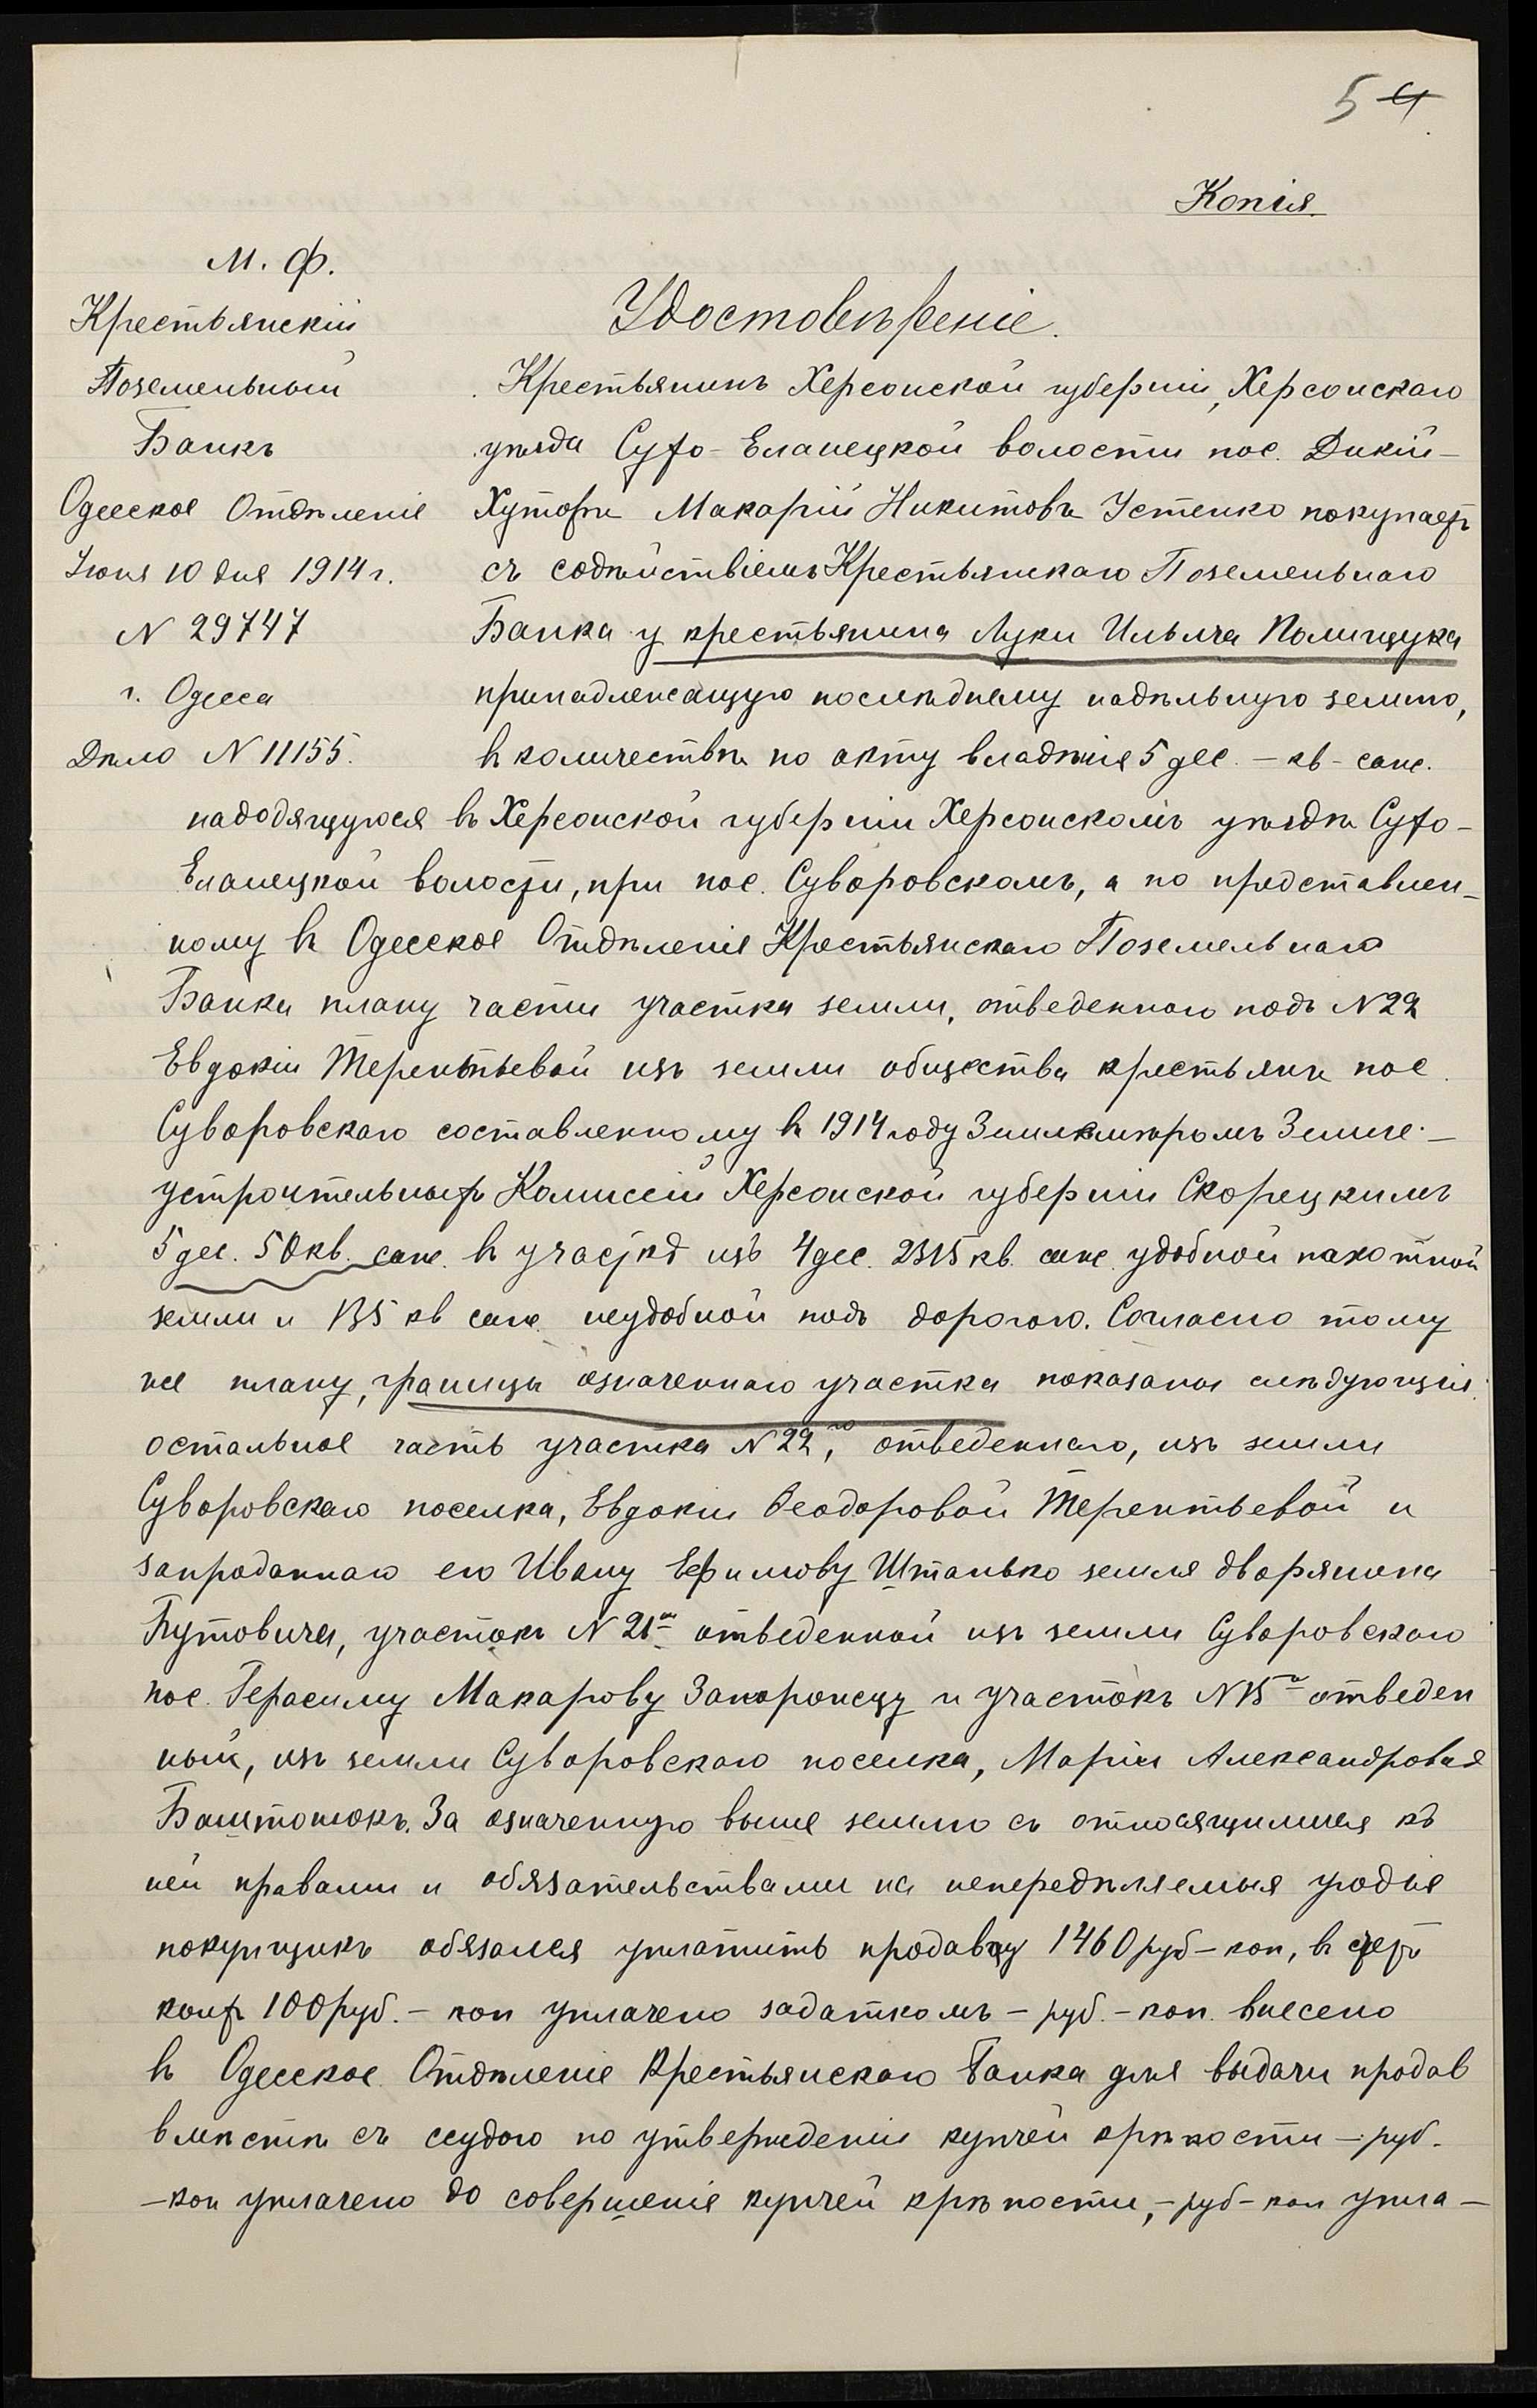 5 4
Копія.
М. Ф.
Крестьянскій
Поземельный
Банкъ
Одесское Отдѣленіе
Іюня 10 дня 1914 г.
N 29747
г. Одесса
Дѣло N 11155.
Удостовѣреніе.
Крестьянинъ Херсонской губерніи, Херсонскаго
уѣзда Сухо-Еланецкой волости пос. Дикій-
Хуторъ Макарій Никитовъ Устенко покупаетъ
съ содѣйствіемъ Крестьянскаго Поземельнаго
Банка у крестьянина Луки Ильича Полищука
принадлежащую послѣднему надѣльную землю,
въ количествѣ по акту владѣнія 5 дес. – кв – саж.
находящуюся въ Херсонской губерніи Херсонскомъ уѣздѣ Сухо-
Еланецкой волости, при пос. Суворовскомъ, а по представлен-
ному въ Одесское Отдѣленіе Крестьянскаго Поземельнаго
Банка плану части участка земли, отведеннаго подъ N 22
Евдокіи Терентьевой изъ земли общества крестьянъ пос.
Суворовскаго составленному въ 1914 году Землемѣромъ Земле-
устроительныхъ Комиссій Херсонской губерніи Скорецкимъ
5 дес. 50 кв. саж. въ участкѣ изъ 4 дес. 2315 кв. саж. удобной пахотной
земли и 135 кв саж. неудобной подъ дорогою. Согласно тому
же плану, границы означеннаго участка показаны слѣдующія:
остальное часть участка N 22, го отведеннаго, изъ земли
Суворовскаго поселка, Евдокіи Ѳеодоровой Терентьевой и
запроданнаго ею Ивану Ефимову Штанько земля дворянина
Бутовича, участокъ N 21й отведенной изъ земли Суворовскаго
пос. Герасиму Макарову Запорожцу и участокъ N 15й отведен
ный, изъ земли Суворовскаго поселка, Маріи Александровая
Баштонюкъ. За означенную выше землю съ относящимися къ
ней правами и обязательствами на непередѣляемыя угодья
покупщикъ обязался уплатить продавцу 1460 руб – коп, въ счетъ
коихъ 100 руб. – коп уплачено задаткомъ – руб. – коп. внесено
въ Одесское Отдѣленіе Крестьянскаго Банка для выдачи продав
вмѣстѣ съ ссудою по утвержденіи купчей крѣпости – руб.
– коп уплачено до совершенія купчей крѣпости, – руб – коп упла-